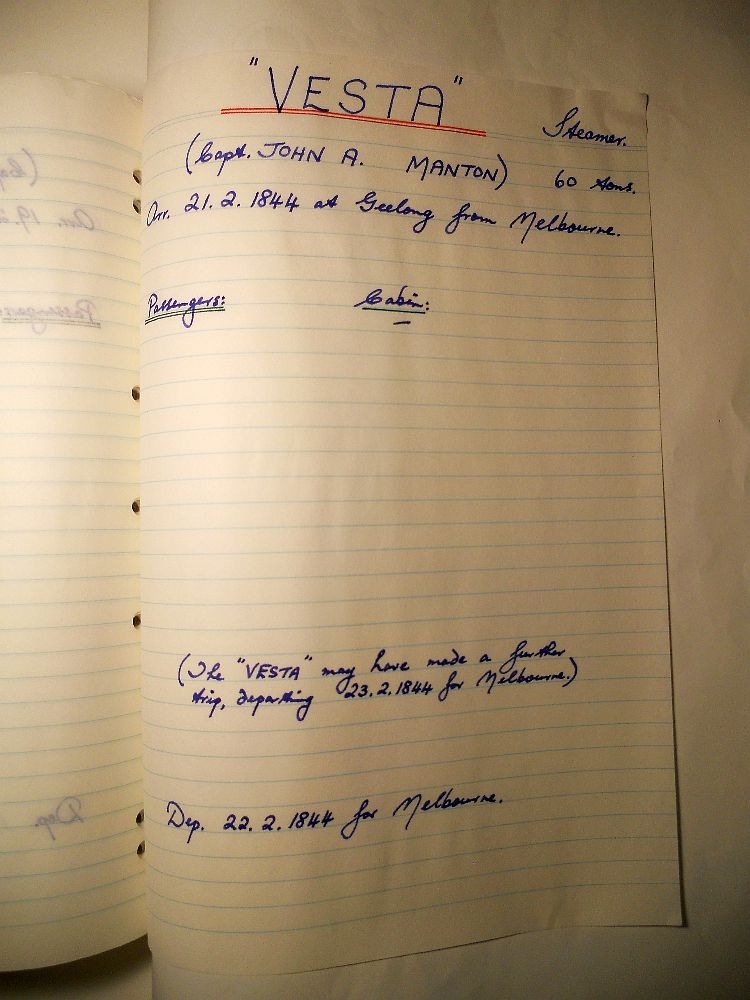 "VESTA"
Steamer.
(Capt. JOHN A. MANTON) 60 tons.
Arr. 21.2.1844 at Geelong from Melbourne.
Passengers: Cabin:
–
(The "VESTA" may have made a further
trip, departing 23.2.1844 for Melbourne.)
Dep. 22.2.1844 for Melbourne.